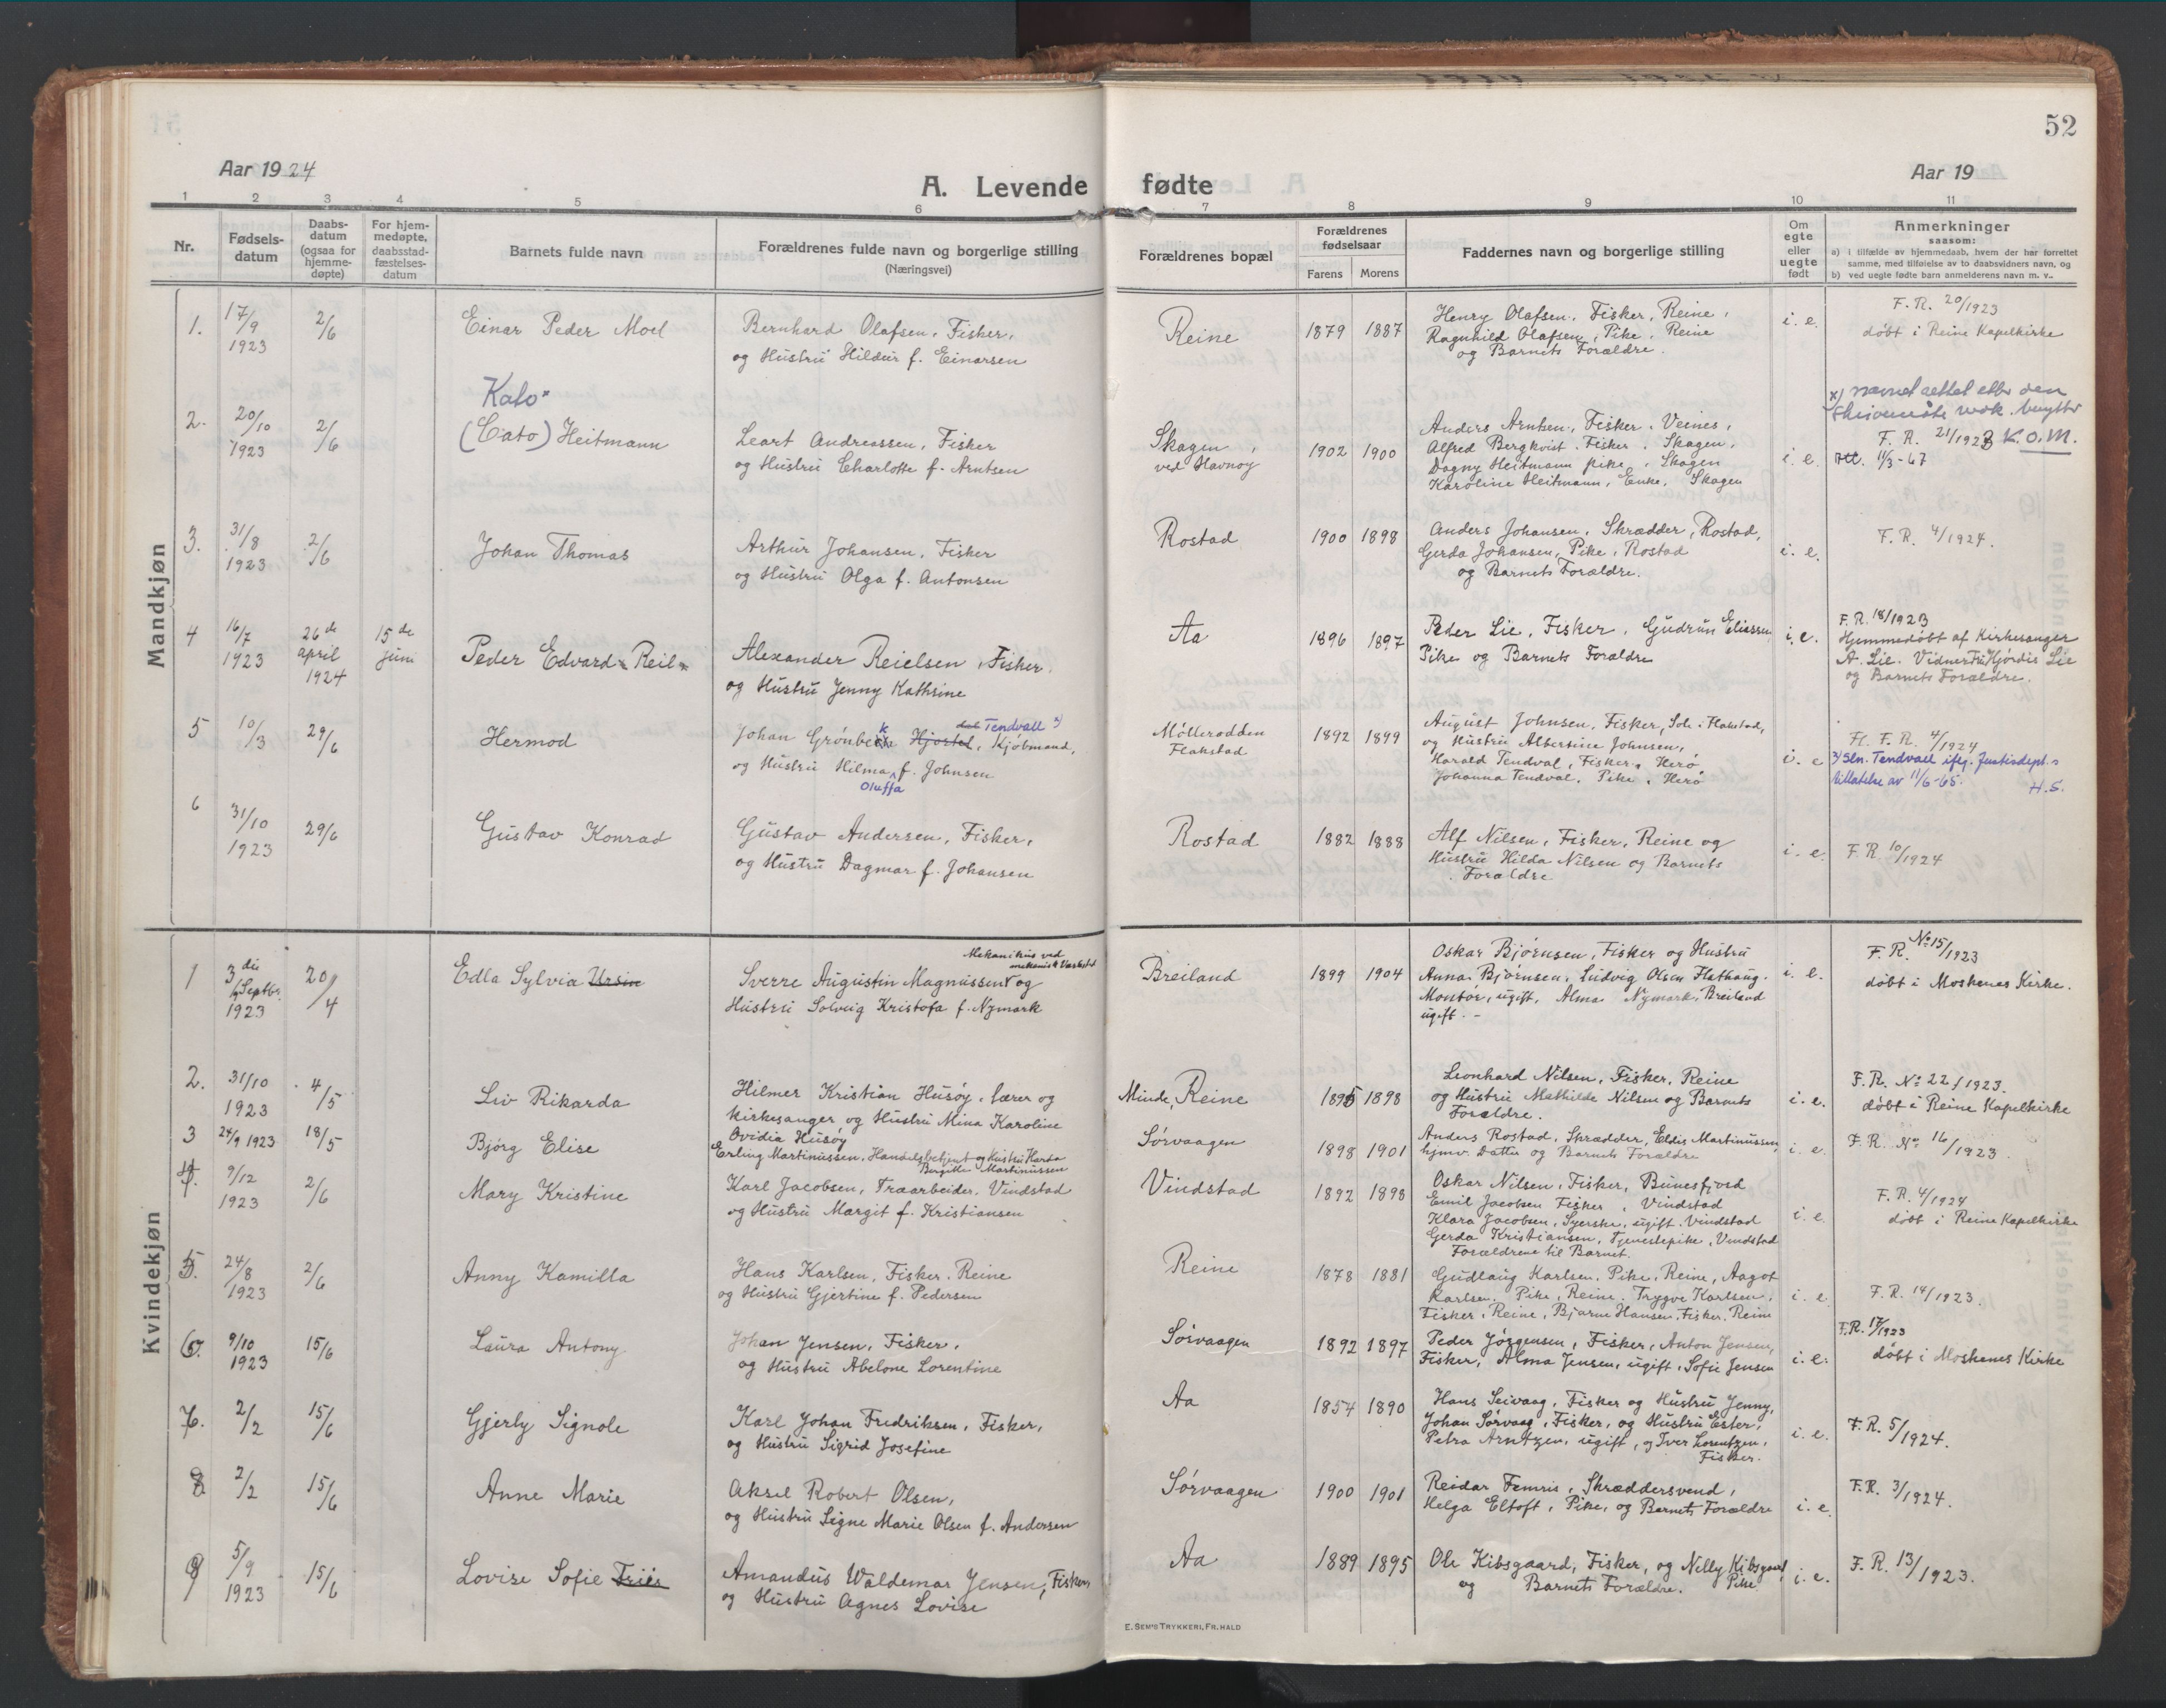 52
Aar 1924
A. Levende fødte
Aar 19
1 2 3 4 5 6 7 8 9 10 11
Nr.
Fødselsdatum
Daabsdatum (ogsaa for hjemmedøpte)
For hjemmedøpte, daabsstadfæstelsesdatum
Barnets fulde navn
Forældrenes fulde navn og borgerlige stilling
(Næringsvei)
Forældrenes bopæl
Forældrenes fødselsaar
Farens Morens
Faddernes navn og borgerlige stilling
Om egte eller uegte født
Anmerkninger
saasom:
a) i tilfælde av hjemmedaab, hvem der har forrettet samme, med tilføielse av to daabsvidners navn, og
b) ved uegte fødte barn anmelderens navn m. v..
Mandkjøn
1. 17/9 1923 2/6 Einar Peder Moel
Bernhard Olafsen, Fisker,
og Hustru Hildur f. Einarsen
Reine 1879 1887
Henry Olafsen, Fisker, Reine,
Ragnhild Olafsen, Pike, Reine
og Barnets Forældre.
i. e.
F. R. 20/1923
døbt i Reine Kapelkirke
2. 20/10 1923 2/6
Kato x
(Cato) Heitmann
Leart Andreassen, Fisker
og Hustru Charlotte f. Arntsen
Skagen,
ved Havnøy
1902 1900
Anders Arntsen, Fisker, Veines,
Alfred Bergkvist, Fisker, Skagen,
Dagny Heitmann pike, Skagen
Karoline Heitmann, Enke, Skagen
i. e.
x) navnet rettet etter den
F. R. 21/1923 K.O.M.
11/3-67
3. 31/8 1923 2/6 Johan Thomas
Arthur Johansen, Fisker
og Hustru Olga f. Antonsen
Rostad 1900 1898
Anders Johansen, Skrædder, Rostad,
Gerda Johansen, Pike, Rostad
og Barnets Forældre.
i. e.
F. R. 4/1924.
4 16/7 1923 26de april 1924 15de juni
Peder Edvard Reil
Alexander Reielsen, Fisker.
og Hustru Jenny Kathrine
Aa 1896 1897
Peder Lie, Fisker, Gudrun Eliassen
Pike og Barnets Forældre
i. e.
F. R. 18/1923
Hjemmedøbt af Kirkesanger
A. Lie. Vidner Fru Hjørdis Lie
og Barnets Forældre.
5 10/3 29/6 Hermod
Tendvall x)
Johan Grønbek Hjortel, Kjøbmand,
og Hustru Hilma f. Johnsen
Oluffa
Mølleradden
Flakstad
1892 1899
August Johnsen, Fisker, Sch. i Flakstad,
og Hustru Albertine Johnsen,
Harald Tendval, Fisker, Herø
Johanna Tendval, Pike, Herø
i. e
Fl. F. R. 4/1924
x) Sln. Tendvall iflg. Justisdept.s
tillatelse av 11/6-65. H.S.
6 31/10 1923 29/6 Gustav Konrad
Gustav Andersen, Fisker,
og Hustru Dagmar f. Johansen
Rostad 1882 1888
Alf Nilsen, Fisker, Reine og
Hustru Hilda Nilsen og Barnets
Forældre
i. e.
F. R. 10/1924
Kvindekjøn
1 3die Septbr. 1923 20/4 Edla Sylvia Ursin
Mekanikus ved
mekanisk Værksted
Sverre Augustin Magnussen og
Hustru Solveig Kristofa f. Nymark
Breiland 1899 1904
Oskar Bjørnsen, Fisker og Hustru
Anna Bjørnsen, Ludvig Olsen Flathaug.
Montør, ugift, Alma Nymark, Breiland
ugift.-
i. e.
F. R. No 15/1923
døbt i Moskenes Kirke.
2. 31/10 1923 4/5 Liv Rikarda
Hilmer Kristian Husøy, lærer og
kirkesanger og Hustru Mina Karoline
Ovidia Husøy
Minde, Reine 1895 1898
Leonhard Nilsen, Fisker, Reine
og Hustru Mathilde Nilsen og Barnets
Forældre.
i. e.
F. R. No 22/1923.
døbt i Reine Kapelkirke
3 24/9 1923 18/5 Bjørg Elise
Erling Martinussen, Handelsbetjent og Hustru Harda
Birgitte Martinussen
Sørvaagen 1898 1901
Anders Rostad, Skrædder, Eldis Martinussen,
hjmv. Datter og Barnets Forældre
i. e.
F. R. No 16/1923.
4. 9/12 1923 2/6 Mary Kristine
Karl Jacobsen, Træarbeider, Vindstad
og Hustru Margit f. Kristiansen
Vindstad 1892 1898
Oskar Nilsen, Fisker, Bunesfjord
Emil Jacobsen Fisker, Vindstad
Klara Jacobsen, Syerske, ugift. Vindstad
Gerda Kristiansen, Tjenestepike, Vindstad
Forældrene til Barnet.
i. e.
F. R. 4/1924
døbt i Reine Kapelkirke
5. 24/8 1923 2/6 Anny Kamilla
Hans Karlsen, Fisker, Reine
og Hustru Gjertine f. Pedersen
Reine 1878 1881
Gudlaug Karlsen, Pike, Reine, Aagot
Karlsen, Pike, Reine, Trygve Karlsen,
Fisker, Reine, Bjarne Hansen, Fisker, Reine
i. e.
F. R. 14/1923.
6. 9/10 1923 15/6 Laura Antony
Johan Jensen, Fisker,
og Hustru Abelone Lorentine
Sørvaagen 1892 1897
Peder Jørgensen, Fisker, Anton Jensen,
Fisker, Alma Jensen, ugift, Sofie Jensen
i. e.
F. R. 17/1923
døbt i Moskenes Kirke
7. 2/2 15/6 Gjerly Signole
Karl Johan Fredriksen, Fisker,
og Hustru Sigrid Josefine
Aa 1854 1890
Hans Seivaag, Fisker og Hustru Jenny,
Johan Sørvaag, Fisker, og Hustru Ester,
Petra Arntzen, ugift, og Iver Lorentzen,
Fisker.
i. e.
F. R. 5/1924.
8 2/2 15/6 Anne Marie
Aksel Robert Olsen,
og Hustru Signe Marie Olsen f. Andersen
Sørvaagen 1900 1901
Reidar Femris, Skræddersvend,
Helga Eltoft, Pike, og Barnets Forældre
i. e.
F. R. 3/1924.
9 5/9 1923 15/6 Lovise Sofie Friis
Amandus Waldemar Jensen, Fisker
og Hustru Agnes Lovise
Aa 1889 1895
Ole Kibsgaard, Fisker, og Nelly Kibsgaard
og Barnets Forældre. Pike
i. e.
F. R. 13/1923.
E. SEM'S TRYKKERI, FR. HALD